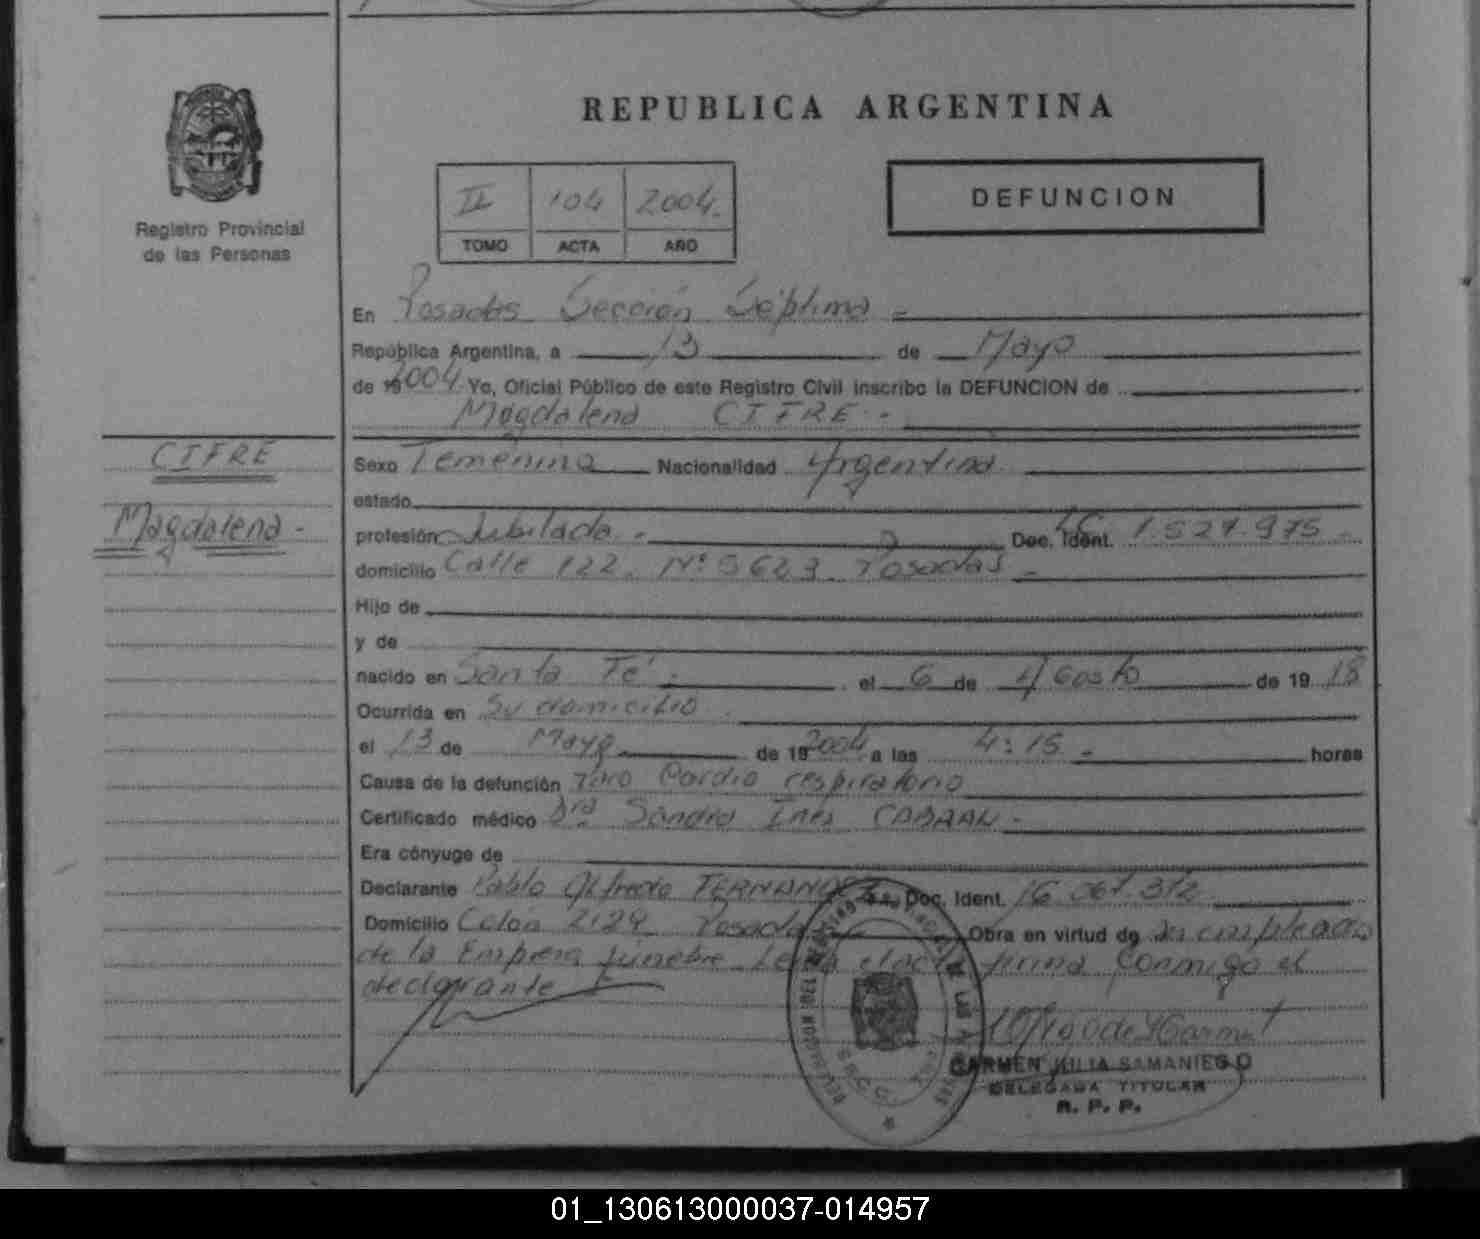 REPUBLICA ARGENTINA
Registro Provincial
de las Personas
II 104 2004.
TOMO ACTA AÑO
DEFUNCION
En Posadas Sección Séptima
República Argentina, a 13 de Mayo
de 19 2004 Yo, Oficial Público de este Registro Civil inscribo la DEFUNCION de
Magdalena CIFRE.-
CIFRE
Magdalena-
Sexo Femenino Nacionalidad Argentina
estado
profesión Jubilada.- Doc. Ident. LC 1.527.975.-
domicilio Calle 122. Nº 5623. Posadas.-
Hijo de
y de
nacido en Santa Fé.- el 6 de Agosto de 19 18
Ocurrida en Su domicilio.
el 13 de Mayo de 19 2004 a las 4:15.- horas
Causa de la defunción Paro Cardio respiratorio
Certificado médico Dra Sandra Ines
Era cónyuge de
Declarante Pablo Alfredo FERNANDEZ Doc. Ident. 16.061.312
Domicilio Colon 2129 Posadas Obra en virtud de ser empleado
de la Empresa fúnebre Leída el acta firma conmigo el
declarante
CARMEN JULIA SAMANIEGO
DELEGADA TITULAR
R. P. P.
01_130613000037-014957